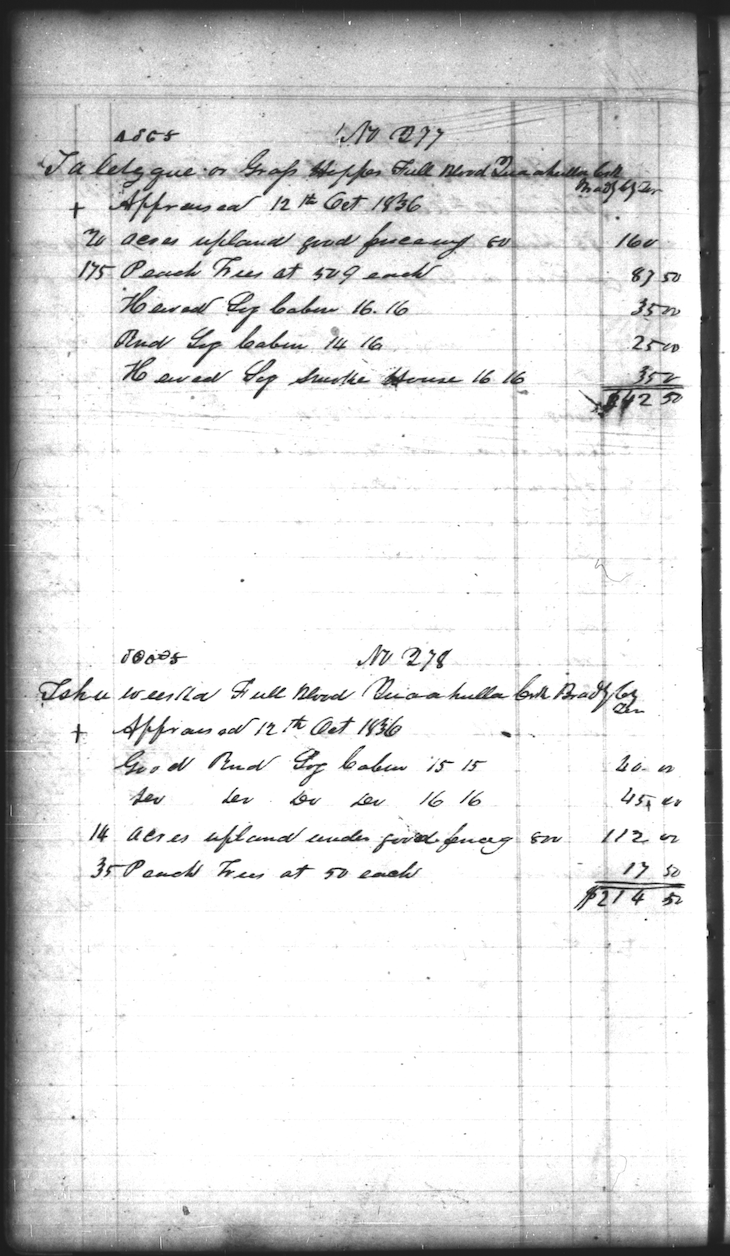 No 277
Taletzque or Grass Hopper Full Blood Quaahulla Crk
Bradly Cy Ten
+ Appraised 12th Oct 1836
20 acres upland good fenceing 80 160
175 Peach Trees at 50 ₵ each 87 50
Hewed Log Cabin 16.16 35 00
Rnd Log Cabin 14 16 25 00
Hewed Log Smoke House 16 16 35 0
342 50
No 278
Full Blood Quaahulla Crk Bradly Cy
Ten
+ Appraised 12th Oct 1836
Good Rnd Log Cabin 15 15 40 00
Do Do Do Do 16 16 45 00
14 acres upland under good fenceg 800 112 00
35 Peach Trees at 50 each 17 50
$214 50